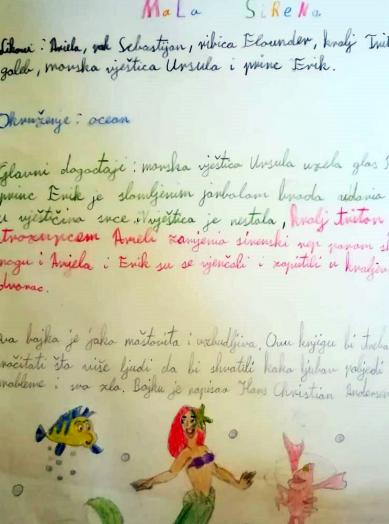 MaLa SiReNa
Likovi : Ariela, rak Sebastijan, ribica Flounder, kralj Trit
galeb, morska vještica Ursula i princ Erik.
Okruženje : ocean
Glavni događaji : morska vještica Ursula uzela glas
princ Erik je slomljenim jarbolom broda
u vještičina srce. Vještica je nestala, kralj Triton
trozupcem Arieli zamjenia sirenski rep parom
nogu i Arijela i Erik su se vjenčali i zaputili u kraljev
dvorac.
va bajka je jako maštovita i uzbudljiva. Ovu knjigu bi treba
ročitati što više ljudi da bi shvatili kako ljubav pobjedi
robleme i sva zla. Bajku je napisao Hans Christian Andersen